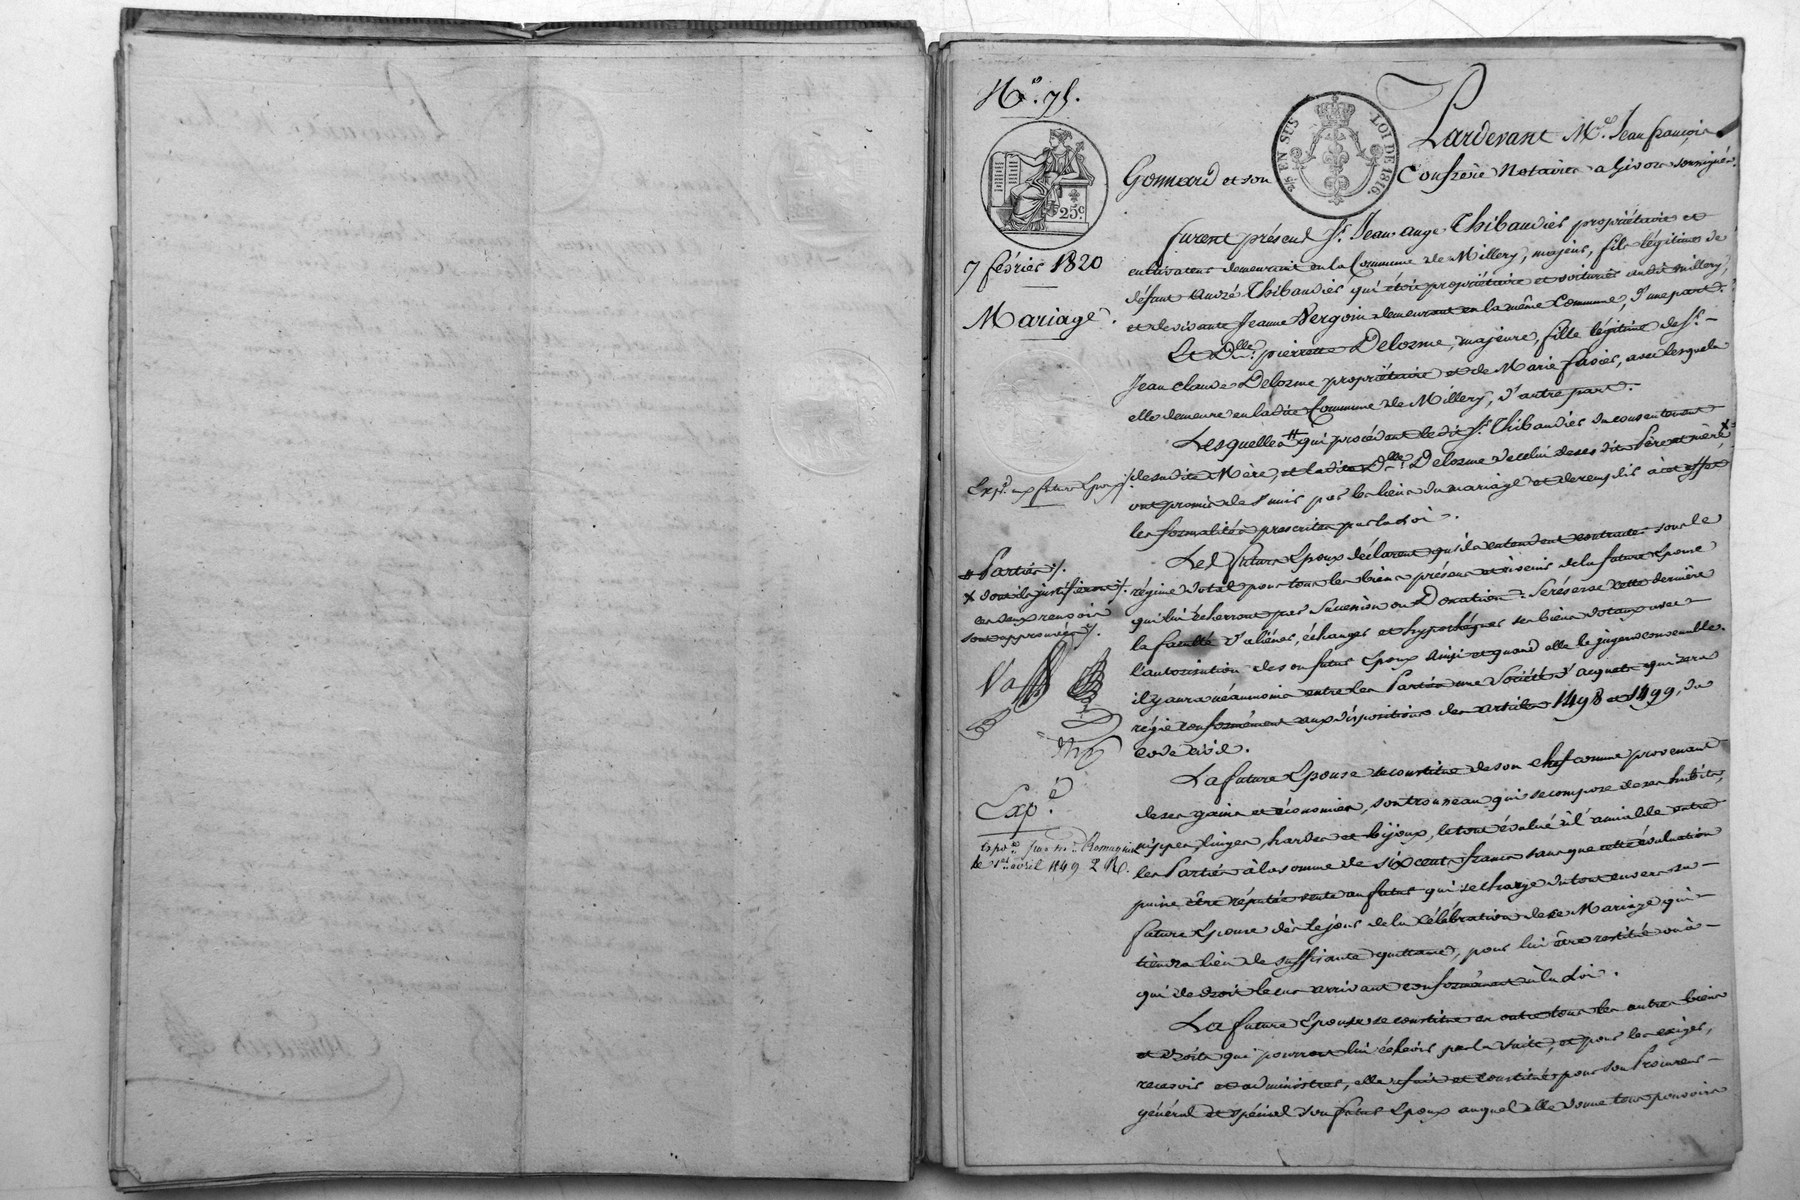 No. 75.
25c
7 février 1820
Mariage.
EN SUS LOI DE 1816.
Pardevant Me. Jean françois
Gonnard et son Confrère Notaires a Givors soussignés.
furent présens Sr. Jean ange Thibaudier propriétaire et
cultivateur demeurant en la Commune de Millery, majeur, fils légitime de
défunt André Thibaudier qui étoit propriétaire et voiturier audit Millery,
et de vivante Jeanne Vergoin demeurant en la même Commune, d'une part.
Et Dlle. pierrette Delorme, majeure, fille légitime de Sr.
Jean claude Delorme propriétaire et de Marie favier, avec lesquels
elle demeure en ladite Commune de Millery, d'autre part.
Lesquelles # qui procédent ledit Sr. Thibaudier du consentement
de sadite Mère, et ladite Dlle. Delorme de celui de ses dits Père et mère x
ont promis de s'unir par les liens du mariage et de remplir à cet effet
les formalités prescrites par la Loi.
Les futurs Epoux déclarent qu'ils entendent contracter sous le
régime dotal pour tous les biens présens et à venir de la future Epouse
qui lui écherront par Succession ou Donation. Se réserve cette dernière
la faculté d'aliéner, échanger et hypothéquer ses biens dotaux avec
l'autorisation de son futur Epoux ainsi et quand elle le jugera convenable.
il y aura néanmoins entre les Parties une Société d'acquets qui sera
régie conformément aux dispositions des articles 1498 et 1499, du
code civil.
La future Epouse se constitue de son chef comme provenant
de ses gains et économies, son trousseau qui se compose de ses habits,
nippes, linges, hardes et bijoux, le tout évalué à l'amiable entre
les Parties à la somme de six cents francs sans que cette évaluation
puisse être réputée vente au futur qui se charge du tout envers sa
future Epouse dès le jour de la célébration de ce Mariage qui
tiendra lieu de suffisante quittance, pour lui être restitué ou à
qui de droit le cas arrivant conformément à la Loi.
La future Epouse se constitue en outre tous les autres biens
et droits qui pourront lui échoir par la suite, et pour les exiger,
recevoir et administrer, elle fait et constitue pour son Procureur
général et spécial son futur Epoux auquel elle donne tous pouvoirs
Expd. aux futurs Epoux
# Parties ./.
x dont ils justifieront ./.
ces deux renvois
sont approuvés ./.
Expé.
le 1er avril 1849 2 R.